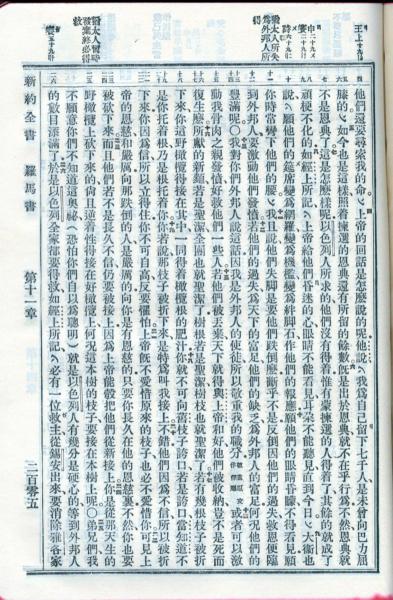 他們還要尋索我的命上帝的回話是怎麼說的呢他說我爲自己留下七千人是未曾向巴力屈
膝的如今也是這樣照着揀選的恩典還有所留的餘數既是出於恩典就不在乎行爲不然恩典就
不是恩典了這是怎麼樣呢以色列人所求的他們沒有得着惟有蒙揀選的人得着了其餘的就成了
頑梗不化的如經上所記上帝給他們昏迷的心眼睛不能看見耳朵不能聽見直到今日大衛也
說願他們的筵席變爲網羅變爲機檻變爲絆脚石作他們的報應願他們的眼睛昏矇不得看見願
你時常彎下他們的腰我且說他們失脚是要他們跌倒麼斷乎不是反倒因他們的過失救恩便臨
到外邦人要激動他們發憤若他們的過失爲天下的富足他們的缺乏爲外邦人的富足何況他們的
豐滿呢〇我對你們外邦人說這話因我是外邦人的使徒所以敬重我的職分敬重原文作榮耀或者可以激
動我骨肉之親發憤好救他們一些人若他們被丟棄天下就得與上帝和好他們被收納豈不是死而
復生麼所獻的新麵若是聖潔全團也就聖潔了樹根若是聖潔樹枝也就聖潔了若有幾根枝子被折
下來你這野橄欖得接在其中一同得着橄欖根的肥汁你就不可向舊枝子誇口若是誇口當知道不
是你托着根乃是根托着你你若說那枝子被折下來是特爲叫我接上不錯他們因爲不信所以被折
下來你因爲信所以立得住你不可自高反要懼怕上帝既不愛惜原來的枝子也必不愛惜你可見上
帝的恩慈和嚴厲向那跌倒的人是嚴厲的向你是有恩慈的只要你長久在他的恩慈裏不然你也要
被砍下來而且他們若不是長久不信仍要被接上因爲上帝能彀把他們從新接上你是從那天生的
野橄欖上砍下來的尚且逆着性得接在好橄欖上何況這本樹的枝子要接在本樹上呢〇弟兄們我
不願意你們不知道這奧祕恐怕你們自以爲聰明就是以色列人有幾分是硬心的等到外邦人
的數目添滿了於是以色列全家都要得救如經上所記必有一位救主從錫安出來要消除雅各家
新約全書 羅馬書 第十一章 二百零五